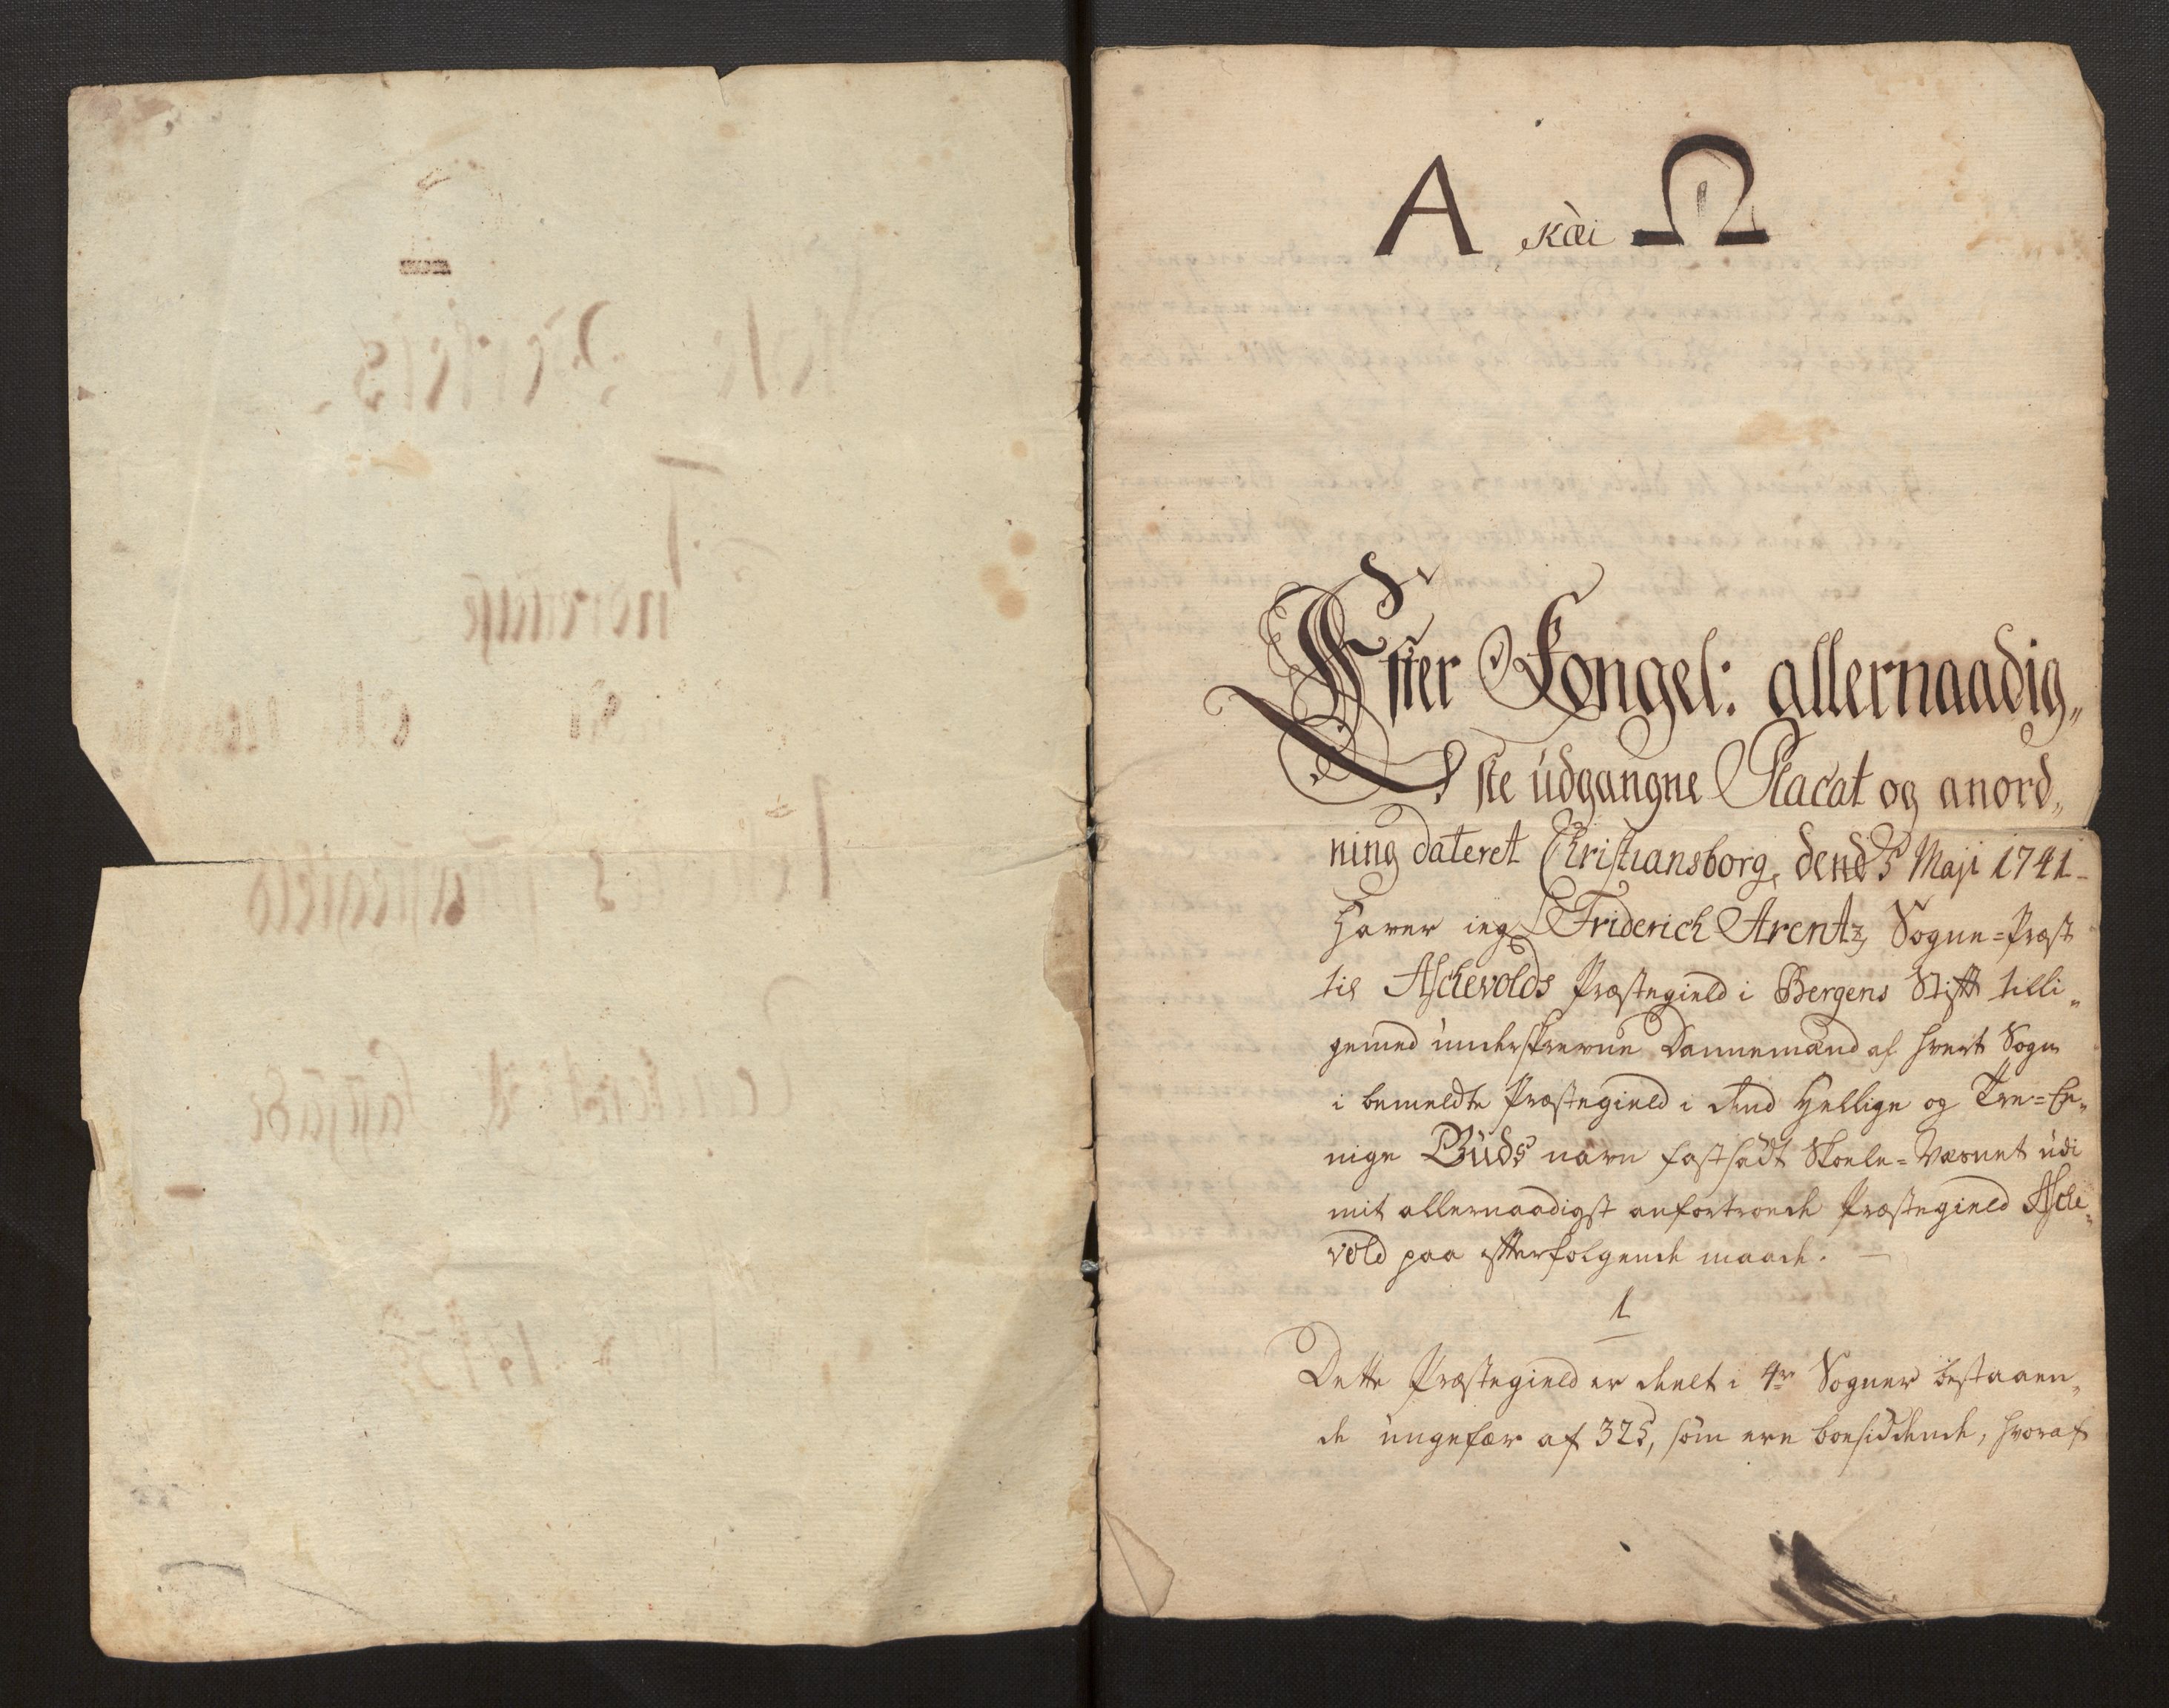 A καὶ Ω
Efter Kongel: allernaadig„
ste udgangne Placat og anord„
ning dateret Christiansborg, dend 5 Maji 1741
Haver ieg Friderich Arentz, Sogne=Præst
til Aschevolds Præstegield i Bergens Stift tilli„
gemed underskrevne Dannemænd af hvert Sogn
i bemeldte Præstegield i dend Hellige og Tre=Ee„
nige Guds navn fastsadt Skoele=Væsnet udi
mit allernaadigst anfortroede Præstegield Asche„
vold paa efterfølgende maade.
1
Dette Præstegield er deelt i 4re Sogner bestaaen„
de ungefær af 325, som ere boesiddende, hvoraf